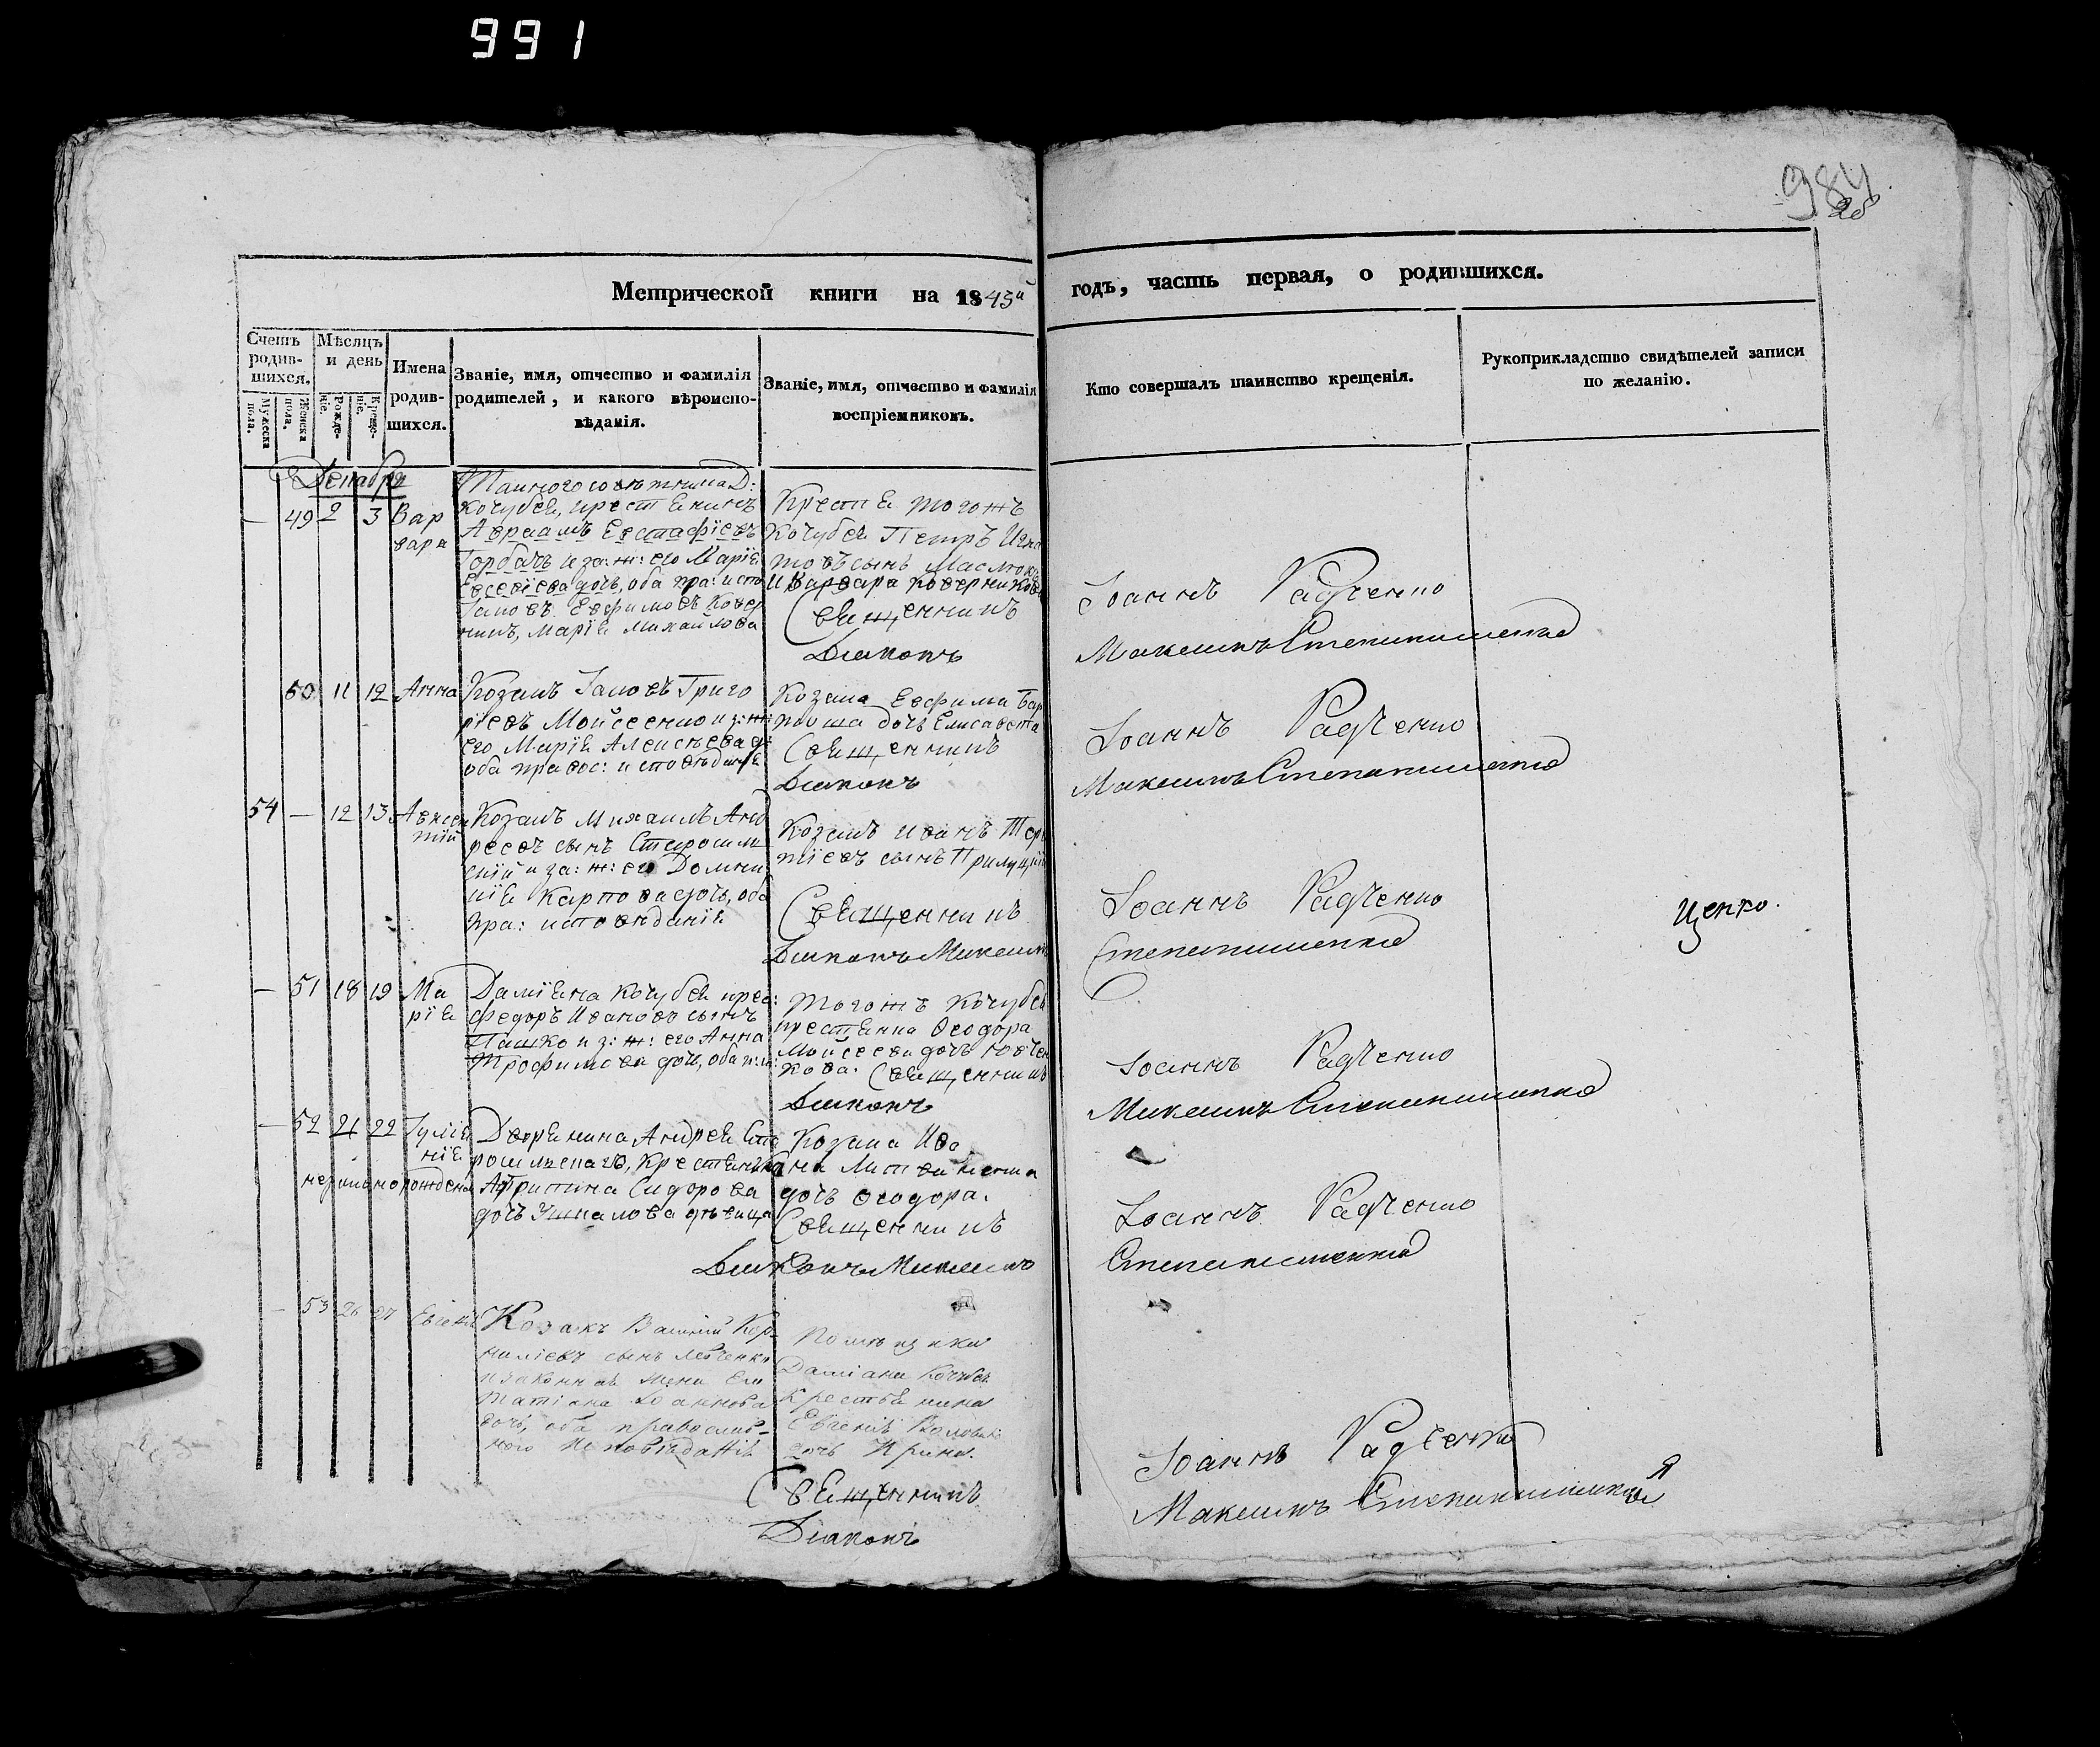 991
984
28
Метрической книги на 1843й годъ, часть первая, о родившихся.
Счетъ родив-шихся.
Мужеска пола.
Женска пола.
Мѣсяцъ и день
Рожде-нія.
Креще-нія.
Имена родив-шихся.
Званіе, имя, отчество и фамилія
родителей, и какого вѣроиспо-
вѣданія.
Званіе, имя, отчество и фамилія
воспріемниковъ.
Кто совершалъ таинство крещенія.
Рукоприкладство свидѣтелей записи
по желанію.
Декабря
— 49 2 3 Вар
вара
Тайного совѣтника Д:
Кочубея, крестянинъ
Авраамъ Евстафіевъ
Горбачъ и за: ж: его Марія
Евсевіева дочь, оба пра: испо
Іаковъ Евфимовъ Ковер
никъ, Марія Михайлова
Крестя: тогожъ
Кочубея Петръ Игна
товъ сынъ Маслюкъ
и Варвара Коверникова
Священникъ
Іоаннъ Радченко
Діаконъ
Максимъ Степанишенко
50 11 12 Анна
Козакъ Іаковъ Григо
ріевъ Мойсеенко и з: ж:
его Марія Алексѣева д:
оба правос: исповѣданія
Козака Евфима Бар
дочь Елисавета
Священникъ
Іоаннъ Радченко
Діаконъ
Максимъ Степанишенко
54 — 12 13 Авксен
тій
Козакъ Михаилъ Анд
реевъ сынъ Старосил
скій и за: ж: его Домни
кія Карпова дочь, оба
пра: исповѣданія
Козакъ Иванъ Тер
тіевъ сынъ Прилуцкій
Священникъ
Іоаннъ Радченко
Діаконъ Максимъ
Степанишенко
ценко.
— 51 18 19 Ма
рія
Даміана Кочубея крес:
Федоръ Ивановъ сынъ
Пашко и з: ж: его Анна
Трофимова дочь, оба п: и:
Тогожъ Кочубея
крестянка Ѳеодора
Мойсеева дочь Ювчен
кова. Священникъ
Іоаннъ Радченко
Діаконъ
Максимъ Степанишенко
— 52 21 22 Іулія
нія
незаконнорожденая
Дворянина Андрея Ста
росилскаго, крестянка
Агрипина Сидорова
дочь Ушкалова дѣвица
Козака Ива
на Литвиненка
дочь Ѳеодора.
Священникъ
Іоаннъ Радченко
Діаконъ Максимъ
Степанишенко
— 53 26 27 Евгенія
Козакъ Василій Кор
ниліевъ сынъ Левченко
и законная жена его
Татіана Іоаннова
дочь, оба православ-
ного исповѣданія
Помѣщика
Даміана Кочубея
Крестьянина
Евгенія
дочь Ирина.
Священникъ
Іоаннъ Радченко
Діаконъ
Максимъ Степанишенко